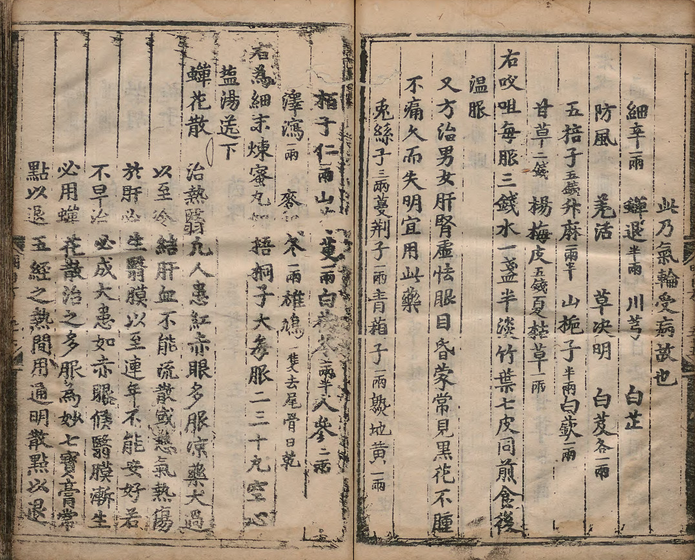 此乃氣輪受病故也
細辛一兩 蟬退半兩 川芎 白芷
防風 羌活 草决明 白芨各一兩
五掊子五錢 升麻一兩半 山梔子半兩 白蘞一兩
甘草二錢 楊梅皮五錢 夏枯草一兩
右㕮咀每服三錢水一盞半淡竹葉七皮同煎食後
温服
又方治男女肝腎虛怯眼目昏蒙常見黑花不腫
不痛久而失明宜用此藥
兎絲子三兩 蔓荆子二兩 青葙子一兩 熟地黄一兩
栢子仁一兩 山 萸一兩 白茯苓一兩半 人參二兩
澤瀉一兩 麥 冬一兩 雄鳩 隻去尾骨日乾
右為細末煉蜜丸 梧桐子大每服二三十丸空心
盐湯送下
蟬花散 治熱翳凡人患紅赤眼多服凉藥大過
以至冷結肝血不能流散或怒氣熱傷
於肝 生翳膜以至連年不能安好若
不早治必成大患如赤眼候翳膜漸生
必用蟬花散治之多服為妙七寳膏常
點以退五經之熱間用通明散點以退